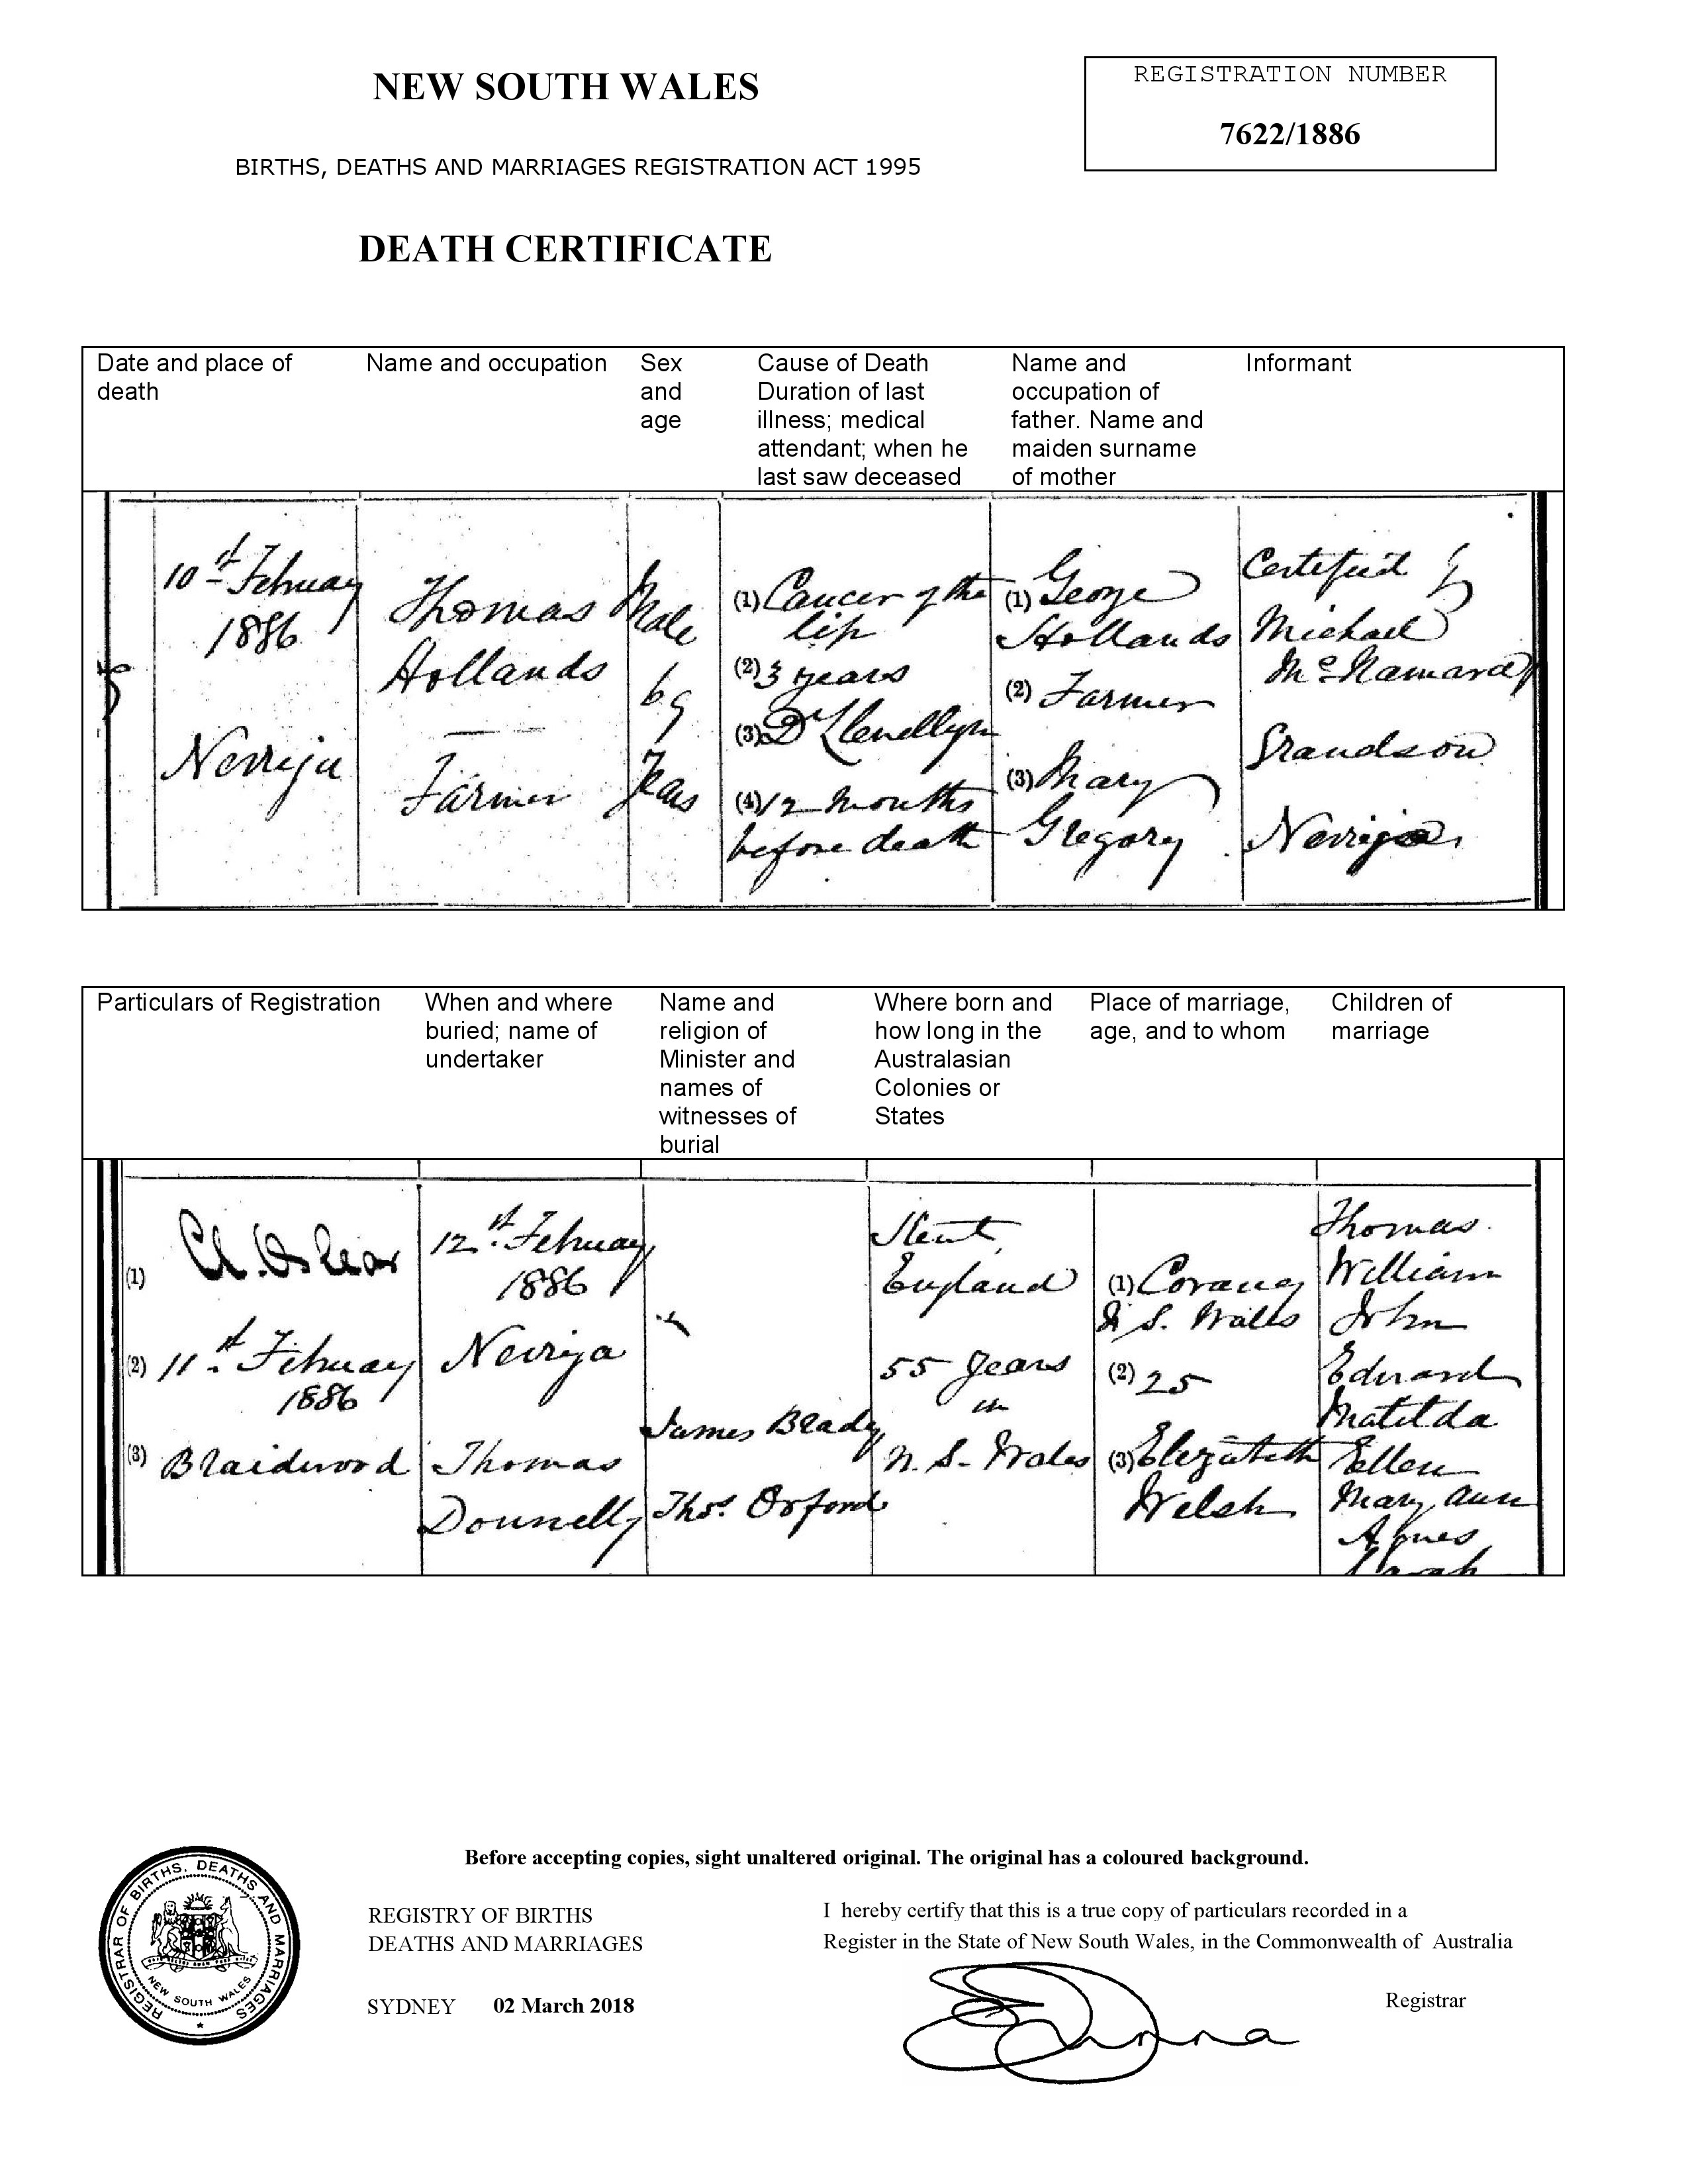 NEW SOUTH WALES
REGISTRATION NUMBER
7622/1886
BIRTHS, DEATHS AND MARRIAGES REGISTRATION ACT 1995
DEATH CERTIFICATE
Date and place of
death
Name and occupation
Sex
and
age
Cause of Death
Duration of last
illness; medical
attendant; when he
last saw deceased
Name and
occupation of
father. Name and
maiden surname
of mother
Informant
10th February
1886
Nerriga
Thomas
Hollands
Farmer
Male
69
Years
(1) Cancer of the
lip
(2) 3 years
(3) Dr Llenellyn
(4) 12 months
before death
(1) George
Hollands
(2) Farmer
(3) Mary
Gregory
Certified by
Michael
McNamara
Grandson
Nerriga
Particulars of Registration
When and where
buried; name of
undertaker
Name and
religion of
Minister and
names of
witnesses of
burial
Where born and
how long in the
Australasian
Colonies or
States
Place of marriage,
age, and to whom
Children of
marriage
(1)
(2) 11th February
1886
(3) Braidwood
12th February
1886
Nerriga
Thomas
Donnelly
James Brady
Thos. Orford
Kent
England
55 Years
in
N. S. Wales
(1) Corang
N. S. Wales
(2) 25
(3) Elizabeth
Welsh
Thomas
William
John
Edward
Matilda
Ellen
Mary Ann
Agnes
Before accepting copies, sight unaltered original. The original has a coloured background.
REGISTRAR OF BIRTHS, DEATHS AND MARRIAGES
NEW SOUTH WALES
REGISTRY OF BIRTHS
DEATHS AND MARRIAGES
SYDNEY 02 March 2018
I hereby certify that this is a true copy of particulars recorded in a
Register in the State of New South Wales, in the Commonwealth of Australia
Registrar